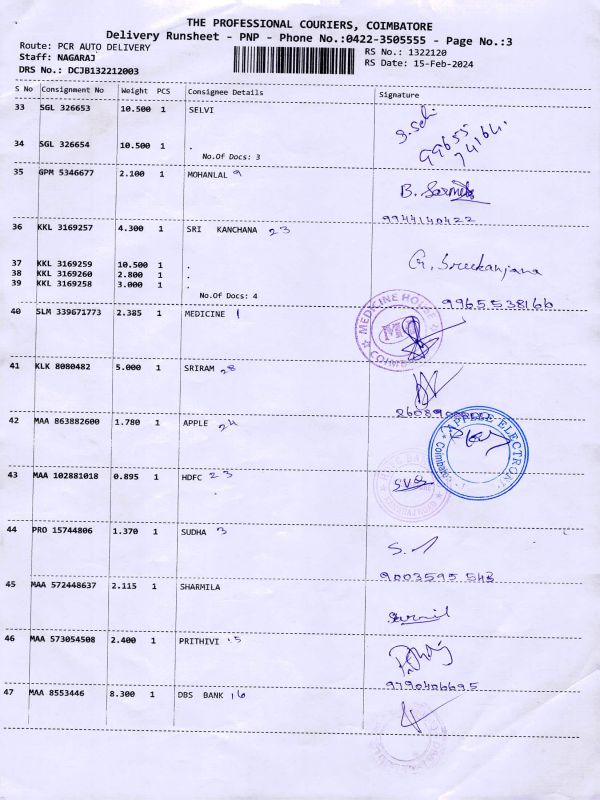 THE PROFESSIONAL COURIERS, COIMBATORE
Delivery Runsheet - PNP - Phone No.:0422-3505555 - Page No.:3
Route: PCR AUTO DELIVERY
Staff: NAGARAJ
DRS No.: DCJB132212003
RS No.: 1322120
RS Date: 15-Feb-2024
S No Consignment No Weight PCS Consignee Details Signature
33 SGL 326653 10.500 1 SELVI
S.Selvi
99655
74164.
34 SGL 326654 10.500 1 .
No.Of Docs: 3
35 GPM 5346677 2.100 1 MOHANLAL 9
9944140422
36 KKL 3169257 4.300 1 SRI KANCHANA 23
37 KKL 3169259 10.500 1 .
38 KKL 3169260 2.800 1 .
39 KKL 3169258 3.000 1 .
No.Of Docs: 4
G. Sreekanjana
9965538166
40 SLM 339671773 2.385 1 MEDICINE 1
MEDICINE HOUSE
41 KLK 8080482 5.000 1 SRIRAM 28
42 MAA 863882600 1.780 1 APPLE 24
APPLE ELECTRONI
Coimbatore - 1
43 MAA 102881018 0.895 1 HDFC 23
SVS
44 PRO 15744806 1.370 1 SUDHA 3
9003595 543
45 MAA 572448637 2.115 1 SHARMILA
46 MAA 573054508 2.400 1 PRITHIVI 15
9790406695
47 MAA 8553446 8.300 1 DBS BANK 16